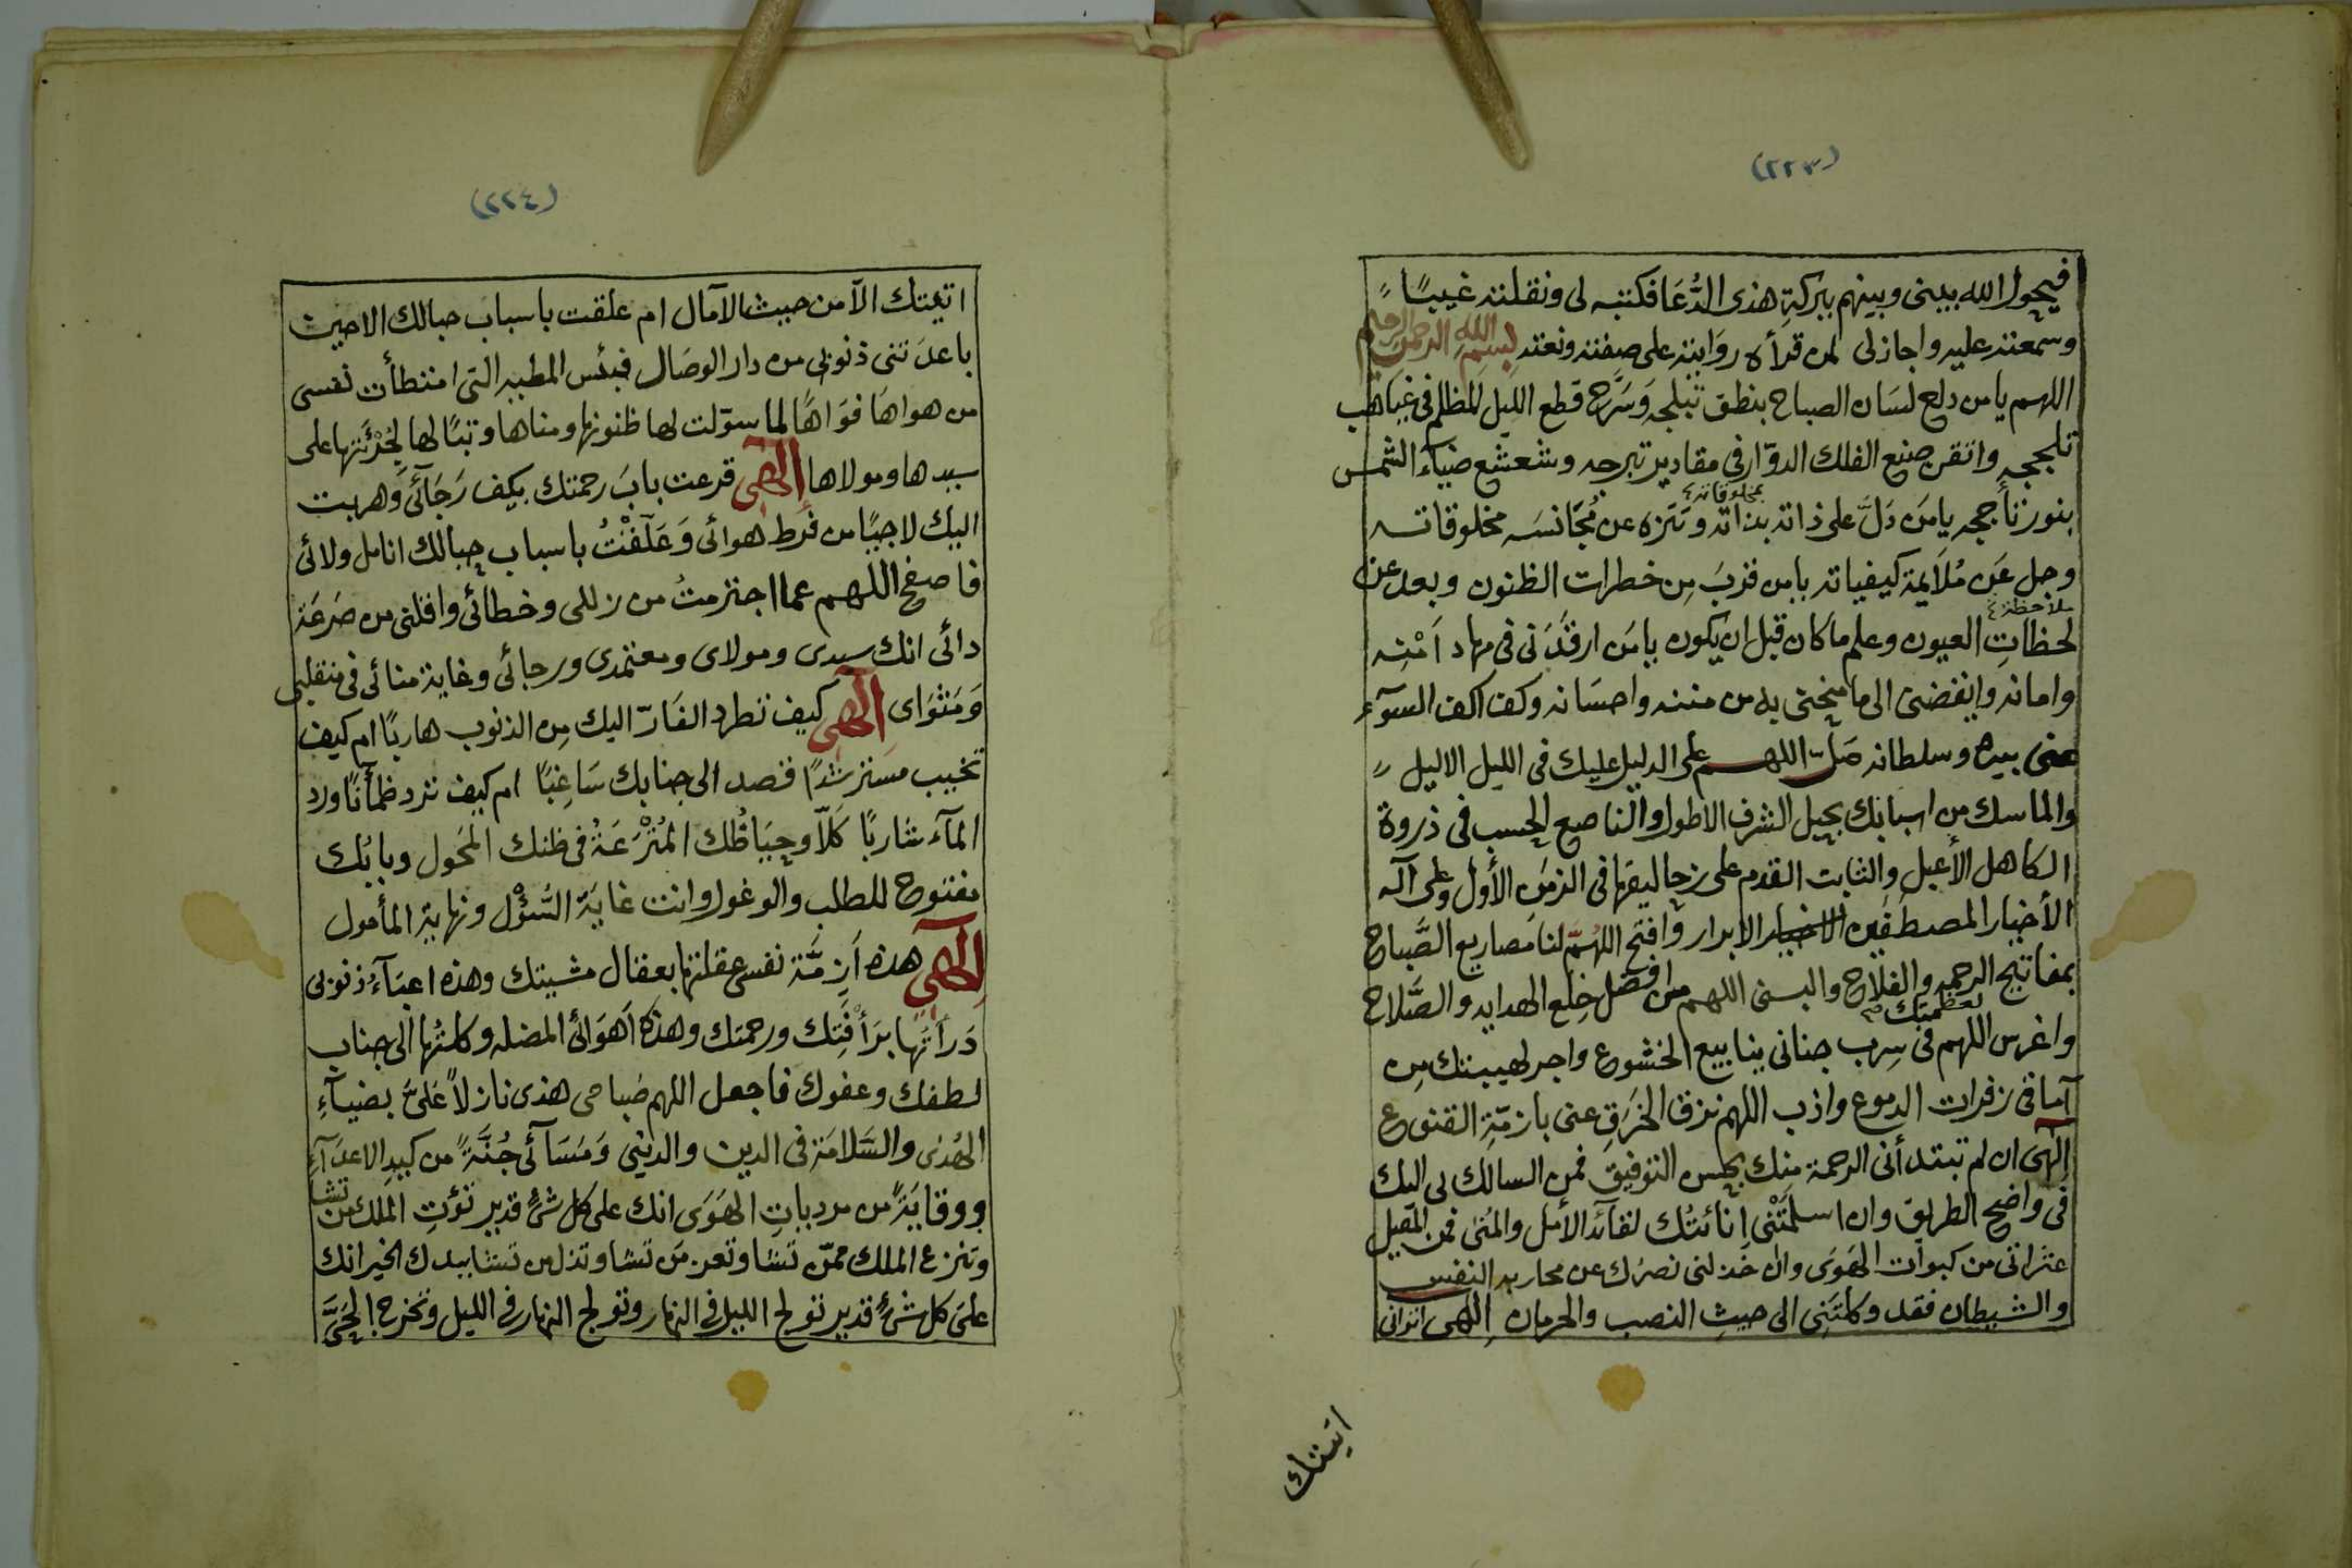 (٢٢٣)
فيحول الله بيني وبينهم ببركة هذى الدُّعَا فكتبته لى ونقلته غيبًا
وسمعته عليه واجاز لى لمن قرأه روايته على صفته ونعته بسم الله الرحمن الرحيم
اللهم يا من دلع لسَان الصباح بنطق تبلجه وَسَرَّح قطع الليل المظلم فى غياهب
تلججه واتقن صنع الفلك الدوّار فى مقادير تبرجه وشعشع ضياءَ الشمس
بمخلوقاته
بنور تأججه يا مَن دَلَّ على ذاته بذاته وتنَزه عن مُجَانسَه مخلوقاته
وجل عَن مُلَايمة كيفياته يا من قربَ مِن خطرات الظنون وبعد عن
ملاحظة
لحظاتِ العيون وعلم ما كان قبل ان يَكون يا مَن ارقَدَنى فى مهاد اَمْنِه
وامانه وايقضنى الى ما منحنى به من مننه واحسَانه وكف اكف السوٓء
عنى بيده وسلطانه صَلّ اللهم على الدليل عليك فى الليل الاليل
والماسك من اسبابك بحبل الشرف الاطول والناصع الحسب فى ذروة
الكاهل الأعبل والثابت القدم على زحاليفها فى الزمن الأول وعلى آله
الأخيار المصطفَين الاخيار الابرار وافتح اللهُمّ لنا مَصاريع الصَّباح
بمفاتيح الرحمه والفلاح والبسنى اللهم من افضل خِلَع الهدايه والصَّلاح
لعظمتك صح
واغرس اللهم فى سِرب جنانى ينابيع الخشوع واجر لهيبتك مِن
آماقى زفرات الدموع واذب اللهم نزق الخَرَقِ عنى بازِمّةِ القنوع
الٓهى ان لم تبتدأنى الرحمة منك بحسن التوفيق فمن السالك بى اليك
فى واضح الطريق وان اسلمَتْنى اِنائتُك لقآئد الأمل والمُنى فمن المقيل
عثراتى من كبوات الهَوَى وان خَذلنى نصرُك عن محاربه النفس
والشيطان فقد وكلتَنِى الى حيثِ النصب والحرمان اِلٓهى اترانى
اتيتك
(٢٢٤)
اتيتك الآ من حيث الآمال ام علقت باسباب حبالك الا حين
باعدَتنى ذنوبى من دار الوصَال فبئس المطيه التى امتطأت نفسى
من هواهَا فوَاهًا لما سوّلت لها ظنونها ومناها وتبًا لها لِجُرْئَتها على
سيدها ومولاها اِلٓهى قرعت بابَ رحمتك بيكف رَجَآئى وهربت
اليك لاجيًا من فرط هوائى وَعَلّقْتُ باسباب حبالك انامل ولائى
فاصفح اللهم عما اجترمتُ من زللى وخطائى واقلنى من صَرعَة
دائى انك سيدى ومولاى ومعتمدى ورجائى وغاية منائى فى منقلبى
وَمَثوَاى اِلٓهى كيف تطرد الفَارّ اليك مِن الذنوب هاربًا ام كيف
تخيب مسترشدًا قصد الى جنابك سَاغِبًا ام كيف ترد ظمأنًا ورد
المآء شاربًا كَلَّا وحِيَاضُك المُتْرَعَةُ فى ظنك المَحُول وبابُك
مفتوح للطلب والوغول وانت غايَة السُّؤْل ونهاية المأمول
اِلٓهى هذه اَزِمَّة نفسى عقلتها بعقال مشيتك وهذه اعبَآءُ ذنوبى
دَرأتُها برَأْفَتِك ورحمتك وهذه اَهوَائى المضله وكلتُها الى جناب
لطفك وعفوك فاجعل اللهم صَباحى هذى نازلاً علىَّ بضيآءِ
الهُدَى والسَّلامَة فى الدين والدينى وَمَسَآئى جُنَّةً من كيدِ الاعدآءِ
ووقايَةً من مرديات الهَوَى انك على كل شئ قدير تؤتِ الملك من تشا
وتنزع الملك ممّن تشا وتعز مَن تشا وتذل من تشا بيدك الخير انك
على كل شئ قدير تولج الليل فى النهار وتولج النهار فى الليل وتخرج الحَىَّ